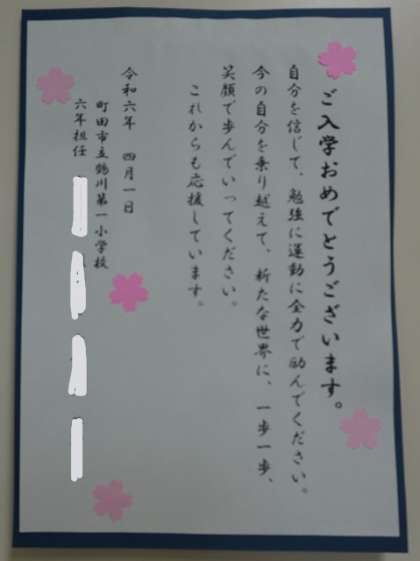 ご入学おめでとうございます。
自分を信じて、勉強に運動に全力で励んでください。
今の自分を乗り越えて、新たな世界に、一歩一歩、
笑顔で歩んでいってください。
これからも応援しています。
令和六年　四月一日
町田市立鶴川第一小学校
六年担任